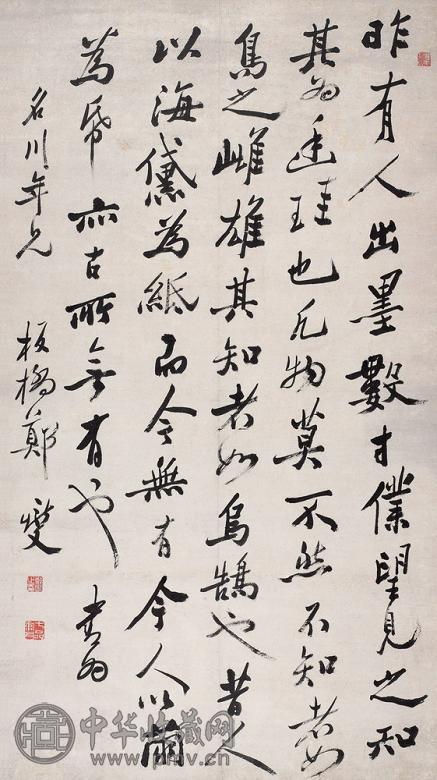 昨有人出墨數寸僕望見之知
其为廷珪也凡物莫不然不知者如
烏之雌雄其知者如烏鵠也昔人
以海黛為紙而今無有今人以
為帋亦古所無有也 書为
名川年兄 板橋鄭燮
中华收藏网